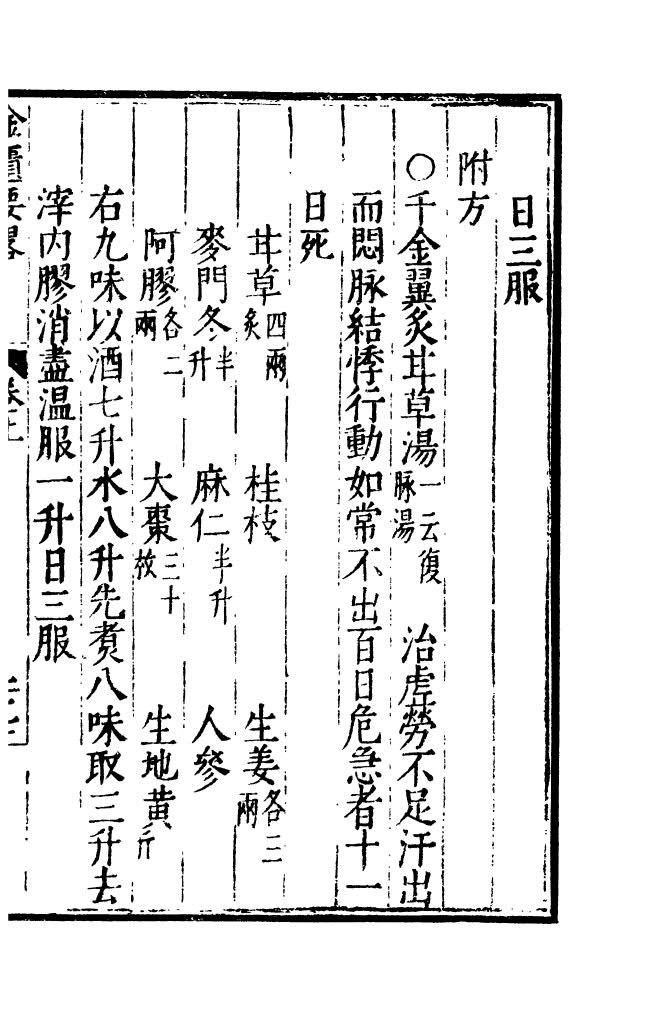 日三服
附方
○千金翼炙甘草湯一云復脉湯　治虛勞不足汗出
而悶脉結悸行動如常不出百日危急者十一
日死
甘草四兩炙　桂枝　生姜各三兩
麥門冬半升　麻仁半升　人參
阿膠各二兩　大棗三十枚　生地黄一斤
右九味以酒七升水八升先煑八味取三升去
滓内膠消盡温服一升日三服
金匱要畧